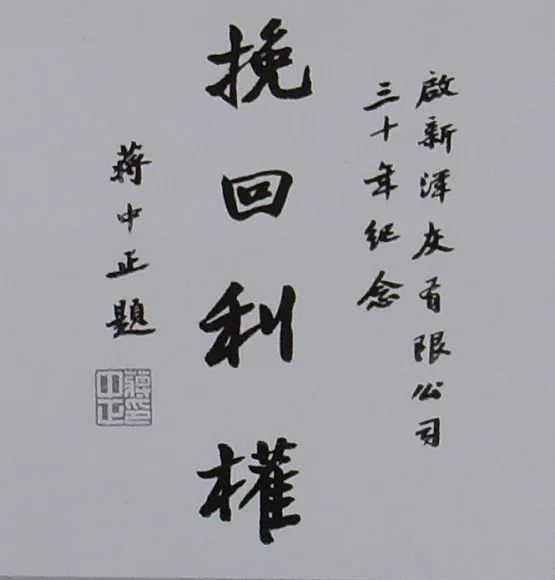 啟新洋灰有限公司
三十年紀念
挽回利權
蔣中正題
蔣中正印